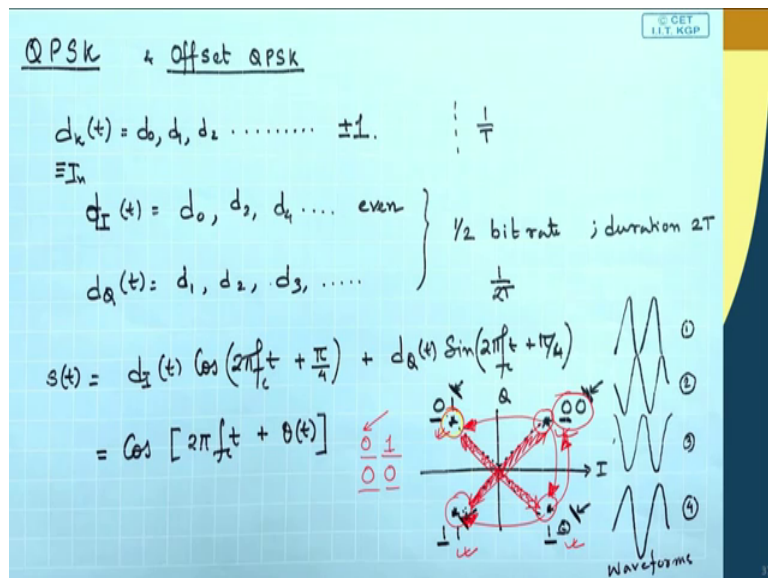 © CET
I.I.T. KGP
QPSK & Offset QPSK
dₖ(t) = d₀, d₁, d₂ ......... ±1. 1/T
≡Iₙ
d_I(t) = d₀, d₂, d₄ .... even
1/2 bit rate ; duration 2T
d_Q(t) = d₁, d₂, d₃, .....
1/2T
s(t) = d_I(t) Cos(2πf_c t + π/4) + d_Q(t) Sin(2πf_c t + π/4)
= Cos [2πf_c t + θ(t)]
0 1
0 0
Q
01
00
I
11
10
①
②
③
④
Waveforms